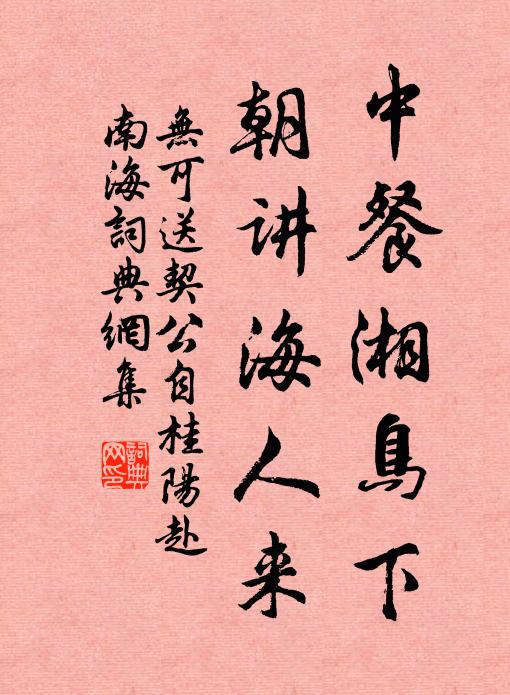 中餐湘鳥下
朝讲海人来
無可送契公自桂陽赴
南海詞典網集
詞典
网印